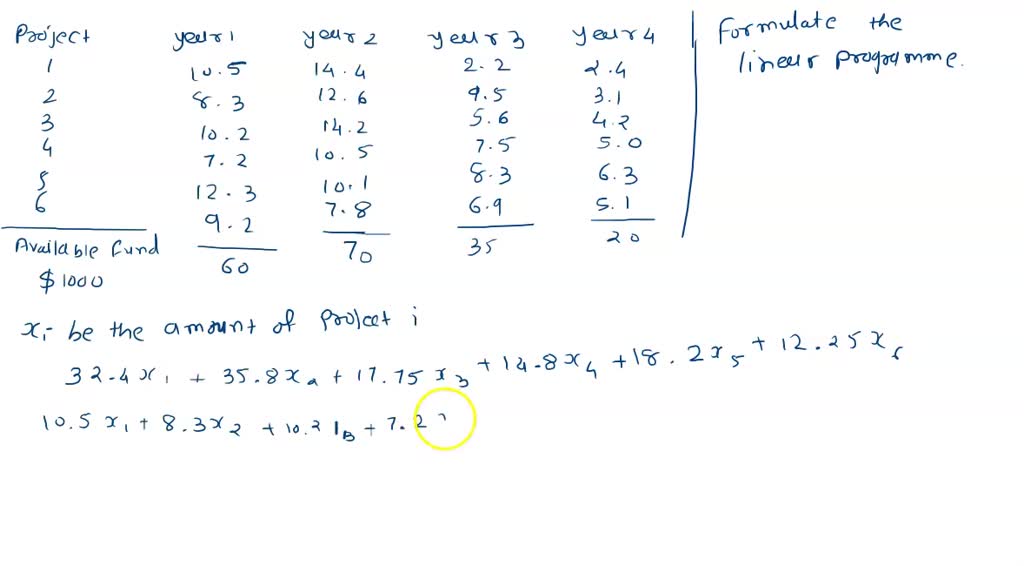 Project year 1 year 2 year 3 year 4 Formulate the
1 10.5 14.4 2.2 2.4 linear programme.
2 8.3 12.6 9.5 3.1
3 10.2 14.2 5.6 4.2
4 7.2 10.5 7.5 5.0
5 12.3 10.1 8.3 6.3
6 9.2 7.8 6.9 5.1
Available fund 60 70 35 20
$1000
xi- be the amount of project i
32.4x1 + 35.8x2 + 17.75x3 + 14.8x4 + 18.2x5 + 12.25x6
10.5x1 + 8.3x2 + 10.2 13 + 7.2